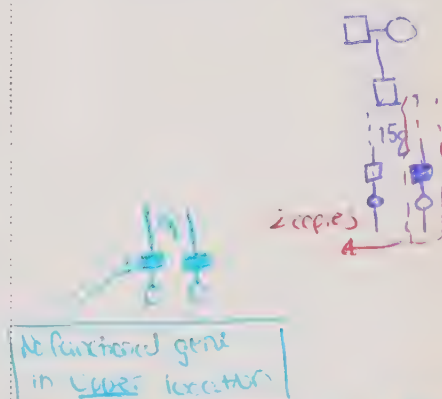 15q
2 copies
A
C C
No functional gene
in upper location